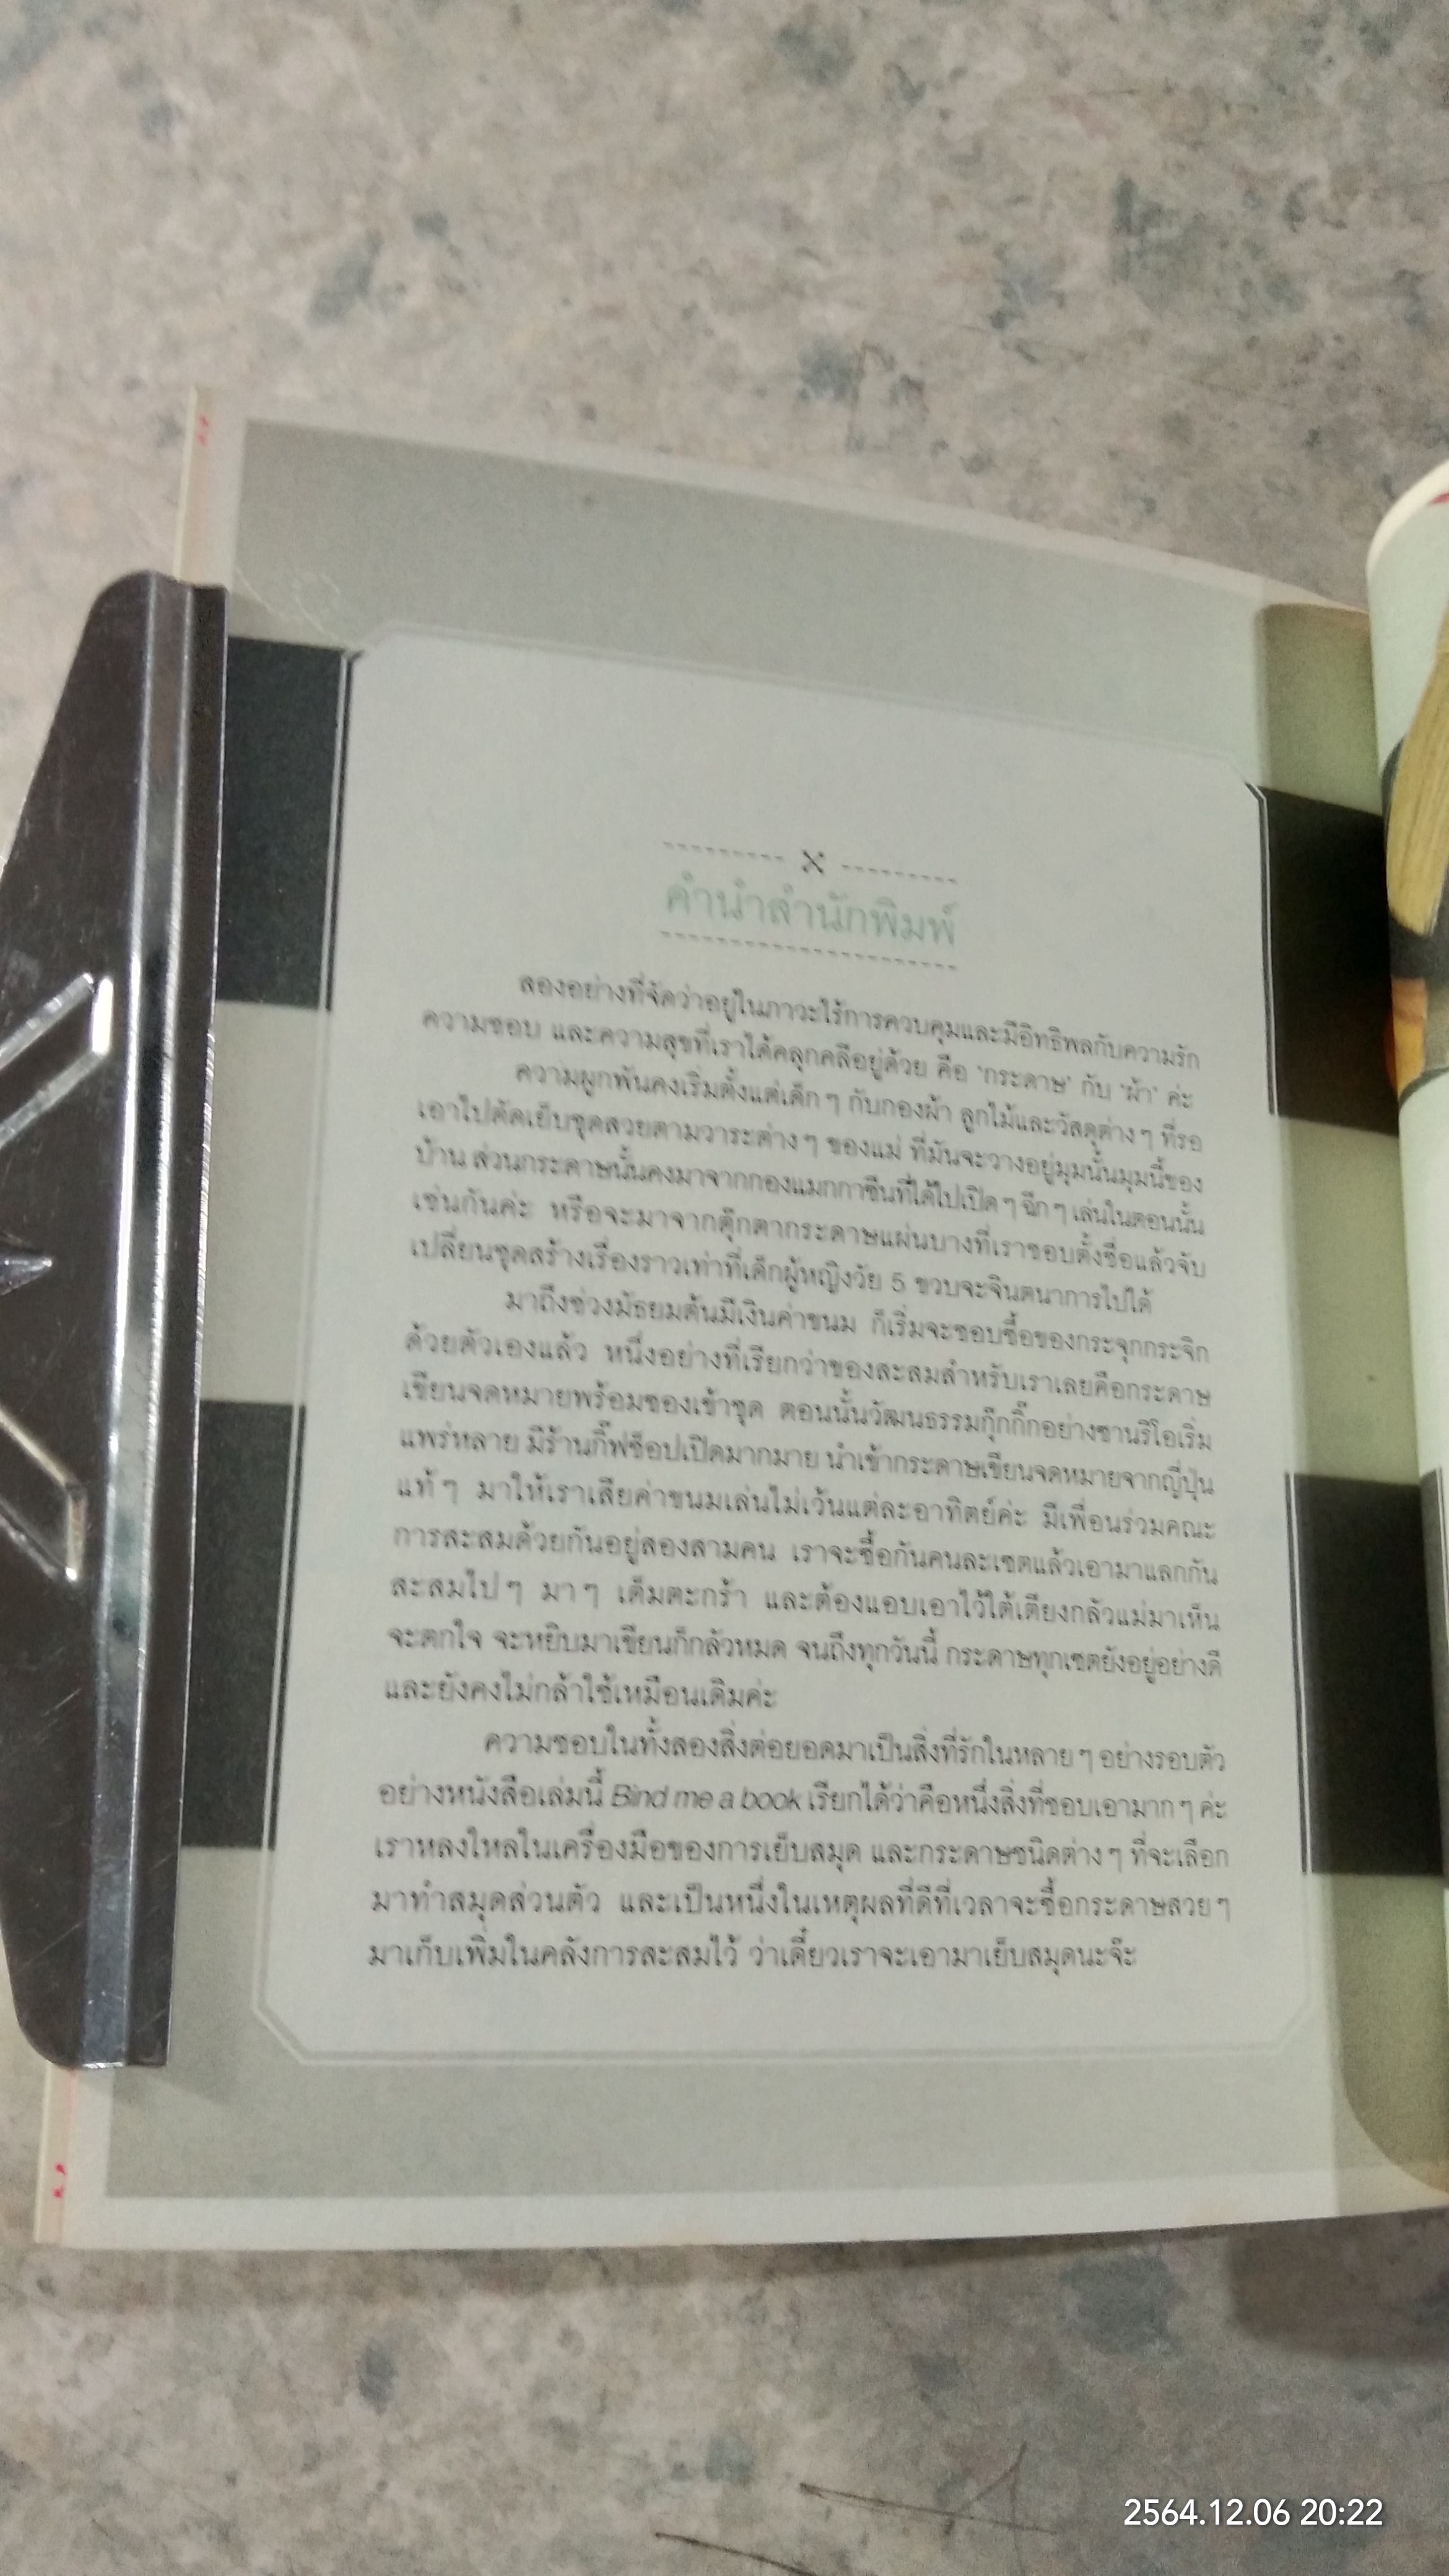 คำนำสำนักพิมพ์
สองอย่างที่จัดว่าอยู่ในภาวะไร้การควบคุมและมีอิทธิพลกับความรัก
ความชอบ และความสุขที่เราได้คลุกคลีอยู่ด้วย คือ ‘กระดาษ’ กับ ‘ผ้า’ ค่ะ
ความผูกพันคงเริ่มตั้งแต่เด็กๆ กับกองผ้า ลูกไม้และวัสดุต่างๆ ที่รอ
เอาไปตัดเย็บชุดสวยตามวาระต่างๆ ของแม่ ที่มันจะวางอยู่มุมนั้นมุมนี้ของ
บ้าน ส่วนกระดาษนั้นคงมาจากกองแมกกาซีนที่ได้ไปเปิดๆ ฉีกๆ เล่นในตอนนั้น
เช่นกันค่ะ หรือจะมาจากตุ๊กตากระดาษแผ่นบางที่เราชอบตั้งชื่อแล้วจับ
เปลี่ยนชุดสร้างเรื่องราวเท่าที่เด็กผู้หญิงวัย 5 ขวบจะจินตนาการไปได้
มาถึงช่วงมัธยมต้นมีเงินค่าขนม ก็เริ่มจะชอบซื้อของกระจุกกระจิก
ด้วยตัวเองแล้ว หนึ่งอย่างที่เรียกว่าของสะสมสำหรับเราเลยคือกระดาษ
เขียนจดหมายพร้อมซองเข้าชุด ตอนนั้นวัฒนธรรมกุ๊กกิ๊กอย่างซานริโอเริ่ม
แพร่หลาย มีร้านกิ๊ฟช็อปเปิดมากมาย นำเข้ากระดาษเขียนจดหมายจากญี่ปุ่น
แท้ๆ มาให้เราเสียค่าขนมเล่นไม่เว้นแต่ละอาทิตย์ค่ะ มีเพื่อนร่วมคณะ
การสะสมด้วยกันอยู่สองสามคน เราจะซื้อกันคนละเซตแล้วเอามาแลกกัน
สะสมไปๆ มาๆ เต็มตะกร้า และต้องแอบเอาไว้ใต้เตียงกลัวแม่มาเห็น
จะตกใจ จะหยิบมาเขียนก็กลัวหมด จนถึงทุกวันนี้ กระดาษทุกเซตยังอยู่อย่างดี
และยังคงไม่กล้าใช้เหมือนเดิมค่ะ
ความชอบในทั้งสองสิ่งต่อยอดมาเป็นสิ่งที่รักในหลายๆ อย่างรอบตัว
อย่างหนังสือเล่มนี้ Bind me a book เรียกได้ว่าคือหนึ่งสิ่งที่ชอบเอามากๆ ค่ะ
เราหลงใหลในเครื่องมือของการเย็บสมุด และกระดาษชนิดต่างๆ ที่จะเลือก
มาทำสมุดส่วนตัว และเป็นหนึ่งในเหตุผลที่ดีที่เวลาจะซื้อกระดาษสวยๆ
มาเก็บเพิ่มในคลังการสะสมไว้ ว่าเดี๋ยวเราจะเอามาเย็บสมุดนะจ๊ะ
2564.12.06 20:22